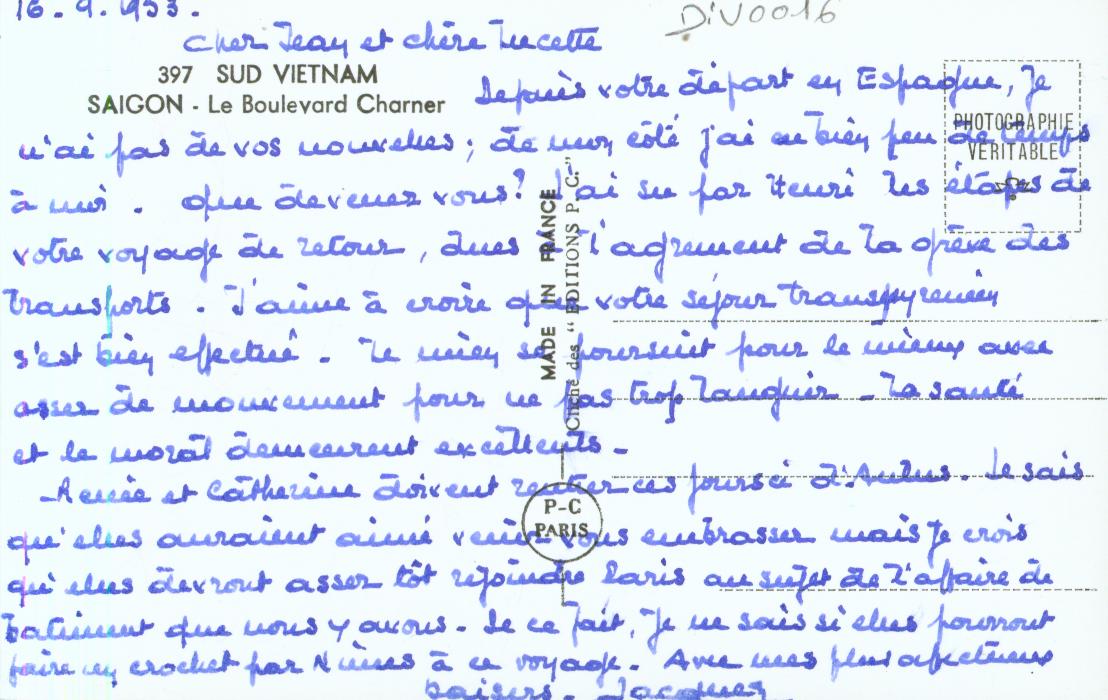 16.9.1953.
DIV0016
Cher Jean et chère Lucette
397 SUD VIETNAM
SAIGON - Le Boulevard Charner
PHOTOGRAPHIE
VÉRITABLE
Depuis votre départ en Espagne, je
n'ai pas de vos nouvelles ; de mon côté j'ai eu bien peu de temps
à moi. Que devenez vous? J'ai su par Henri les étapes de
votre voyage de retour, dues à l'agrément de la grève des
transports. J'aime à croire que votre séjour transpyrénéen
s'est bien effectué. Le mien se poursuit pour le mieux avec
assez de mouvement pour ne pas trop languir - La santé
et le moral demeurent excellents -
Renée et Catherine doivent rentrer ces jours ci d'Aulus. Je sais
qu'elles auraient aimé venir vous embrasser mais je crois
qu'elles devront assez tôt rejoindre Paris au sujet de l'affaire de
batiment que nous y avons - De ce fait, je ne sais si elles pourront
faire un crochet par Nîmes à ce voyage. Avec mes plus affectueux
baisers. Jacques
MADE IN FRANCE
Cliché des "EDITIONS P. C."
P-C
PARIS